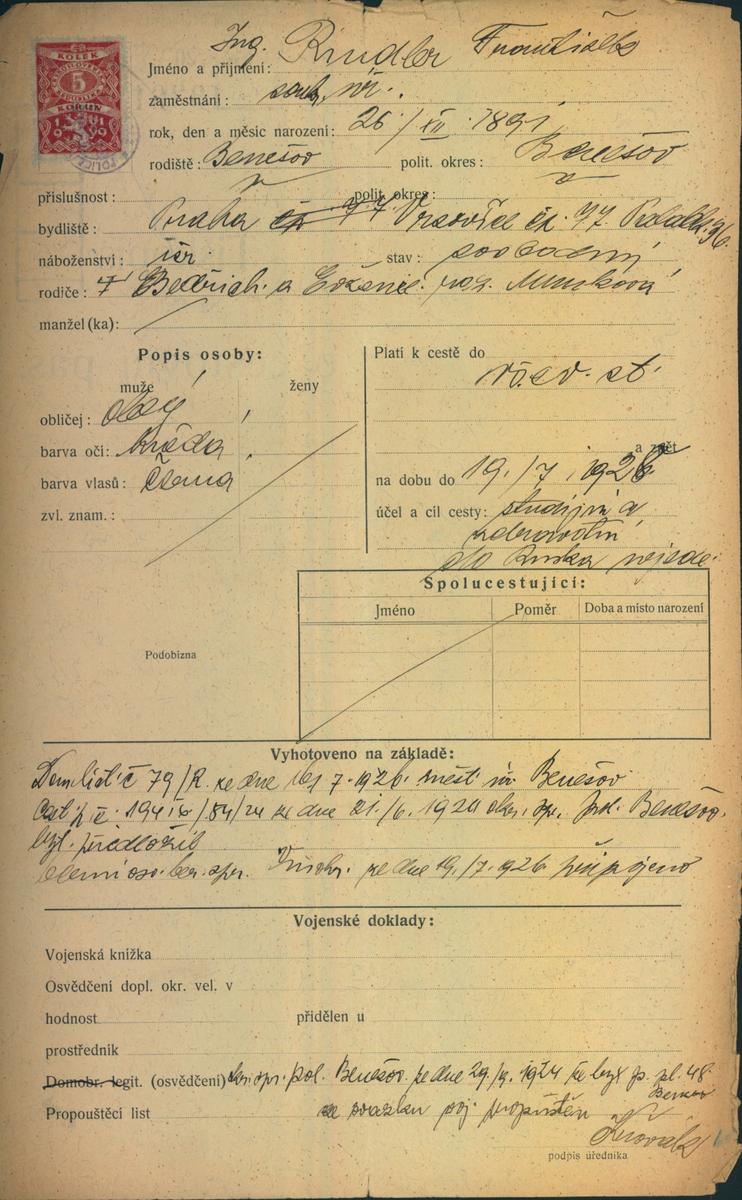 KOLEK
5
KORUN
Jméno a přijmení: Ing. Rindler František
zaměstnání: souk. úř.
rok, den a měsíc narození: 26/XII. 1891
rodiště: Benešov polit. okres: Benešov
příslušnost: " polit. okres: "
bydliště: Praha Vršovice čp. 77.
náboženství: isr. stav: svobodný
rodiče: † Bedřich a roz. Munková
manžel(ka):
Popis osoby: Platí k cestě do
muže ženy
obličej: oblý
barva očí: hnědá
barva vlasů: černá
zvl. znam.:
evr. st.
a zpět
na dobu do 19./7. 1928
účel a cíl cesty: studijní a
zdravotní
do Ruska nejede.
Spolucestující:
Jméno Poměr Doba a místo narození
Podobizna
Vyhotoveno na základě:
Dom. list č 79/R. ze dne 7. 1926. měst. úř. Benešov
ze dne 21./6. 1924 okr. spr. pol. Benešov.
byl. předložil
ze dne 19./7. 1926 připojeno
Vojenské doklady:
Vojenská knížka
Osvědčení dopl. okr. vel. v
hodnost přidělen u
prostředník
Domobr. legit. (osvědčení) okr. spr. pol. Benešov ze dne 1924 že byl p. pl. 48
Benešov
Propouštěcí list ze svazku voj. propuštěn
podpis úředníka